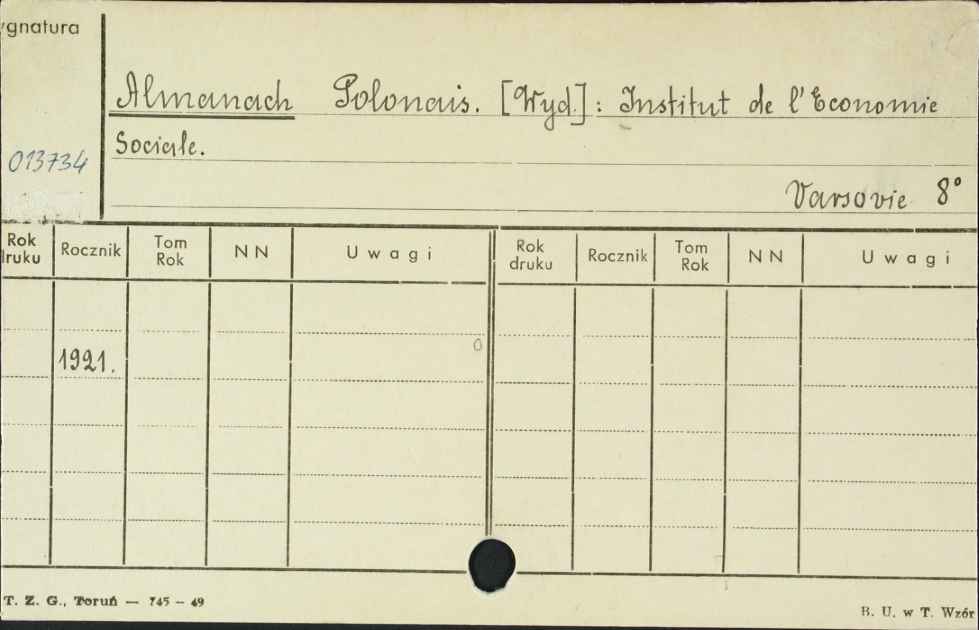 ygnatura
Almanach Polonais. [Wyd.]: Institut de l'Economie
Sociale.
013734
Varsovie 8°
Rok druku Rocznik Tom Rok NN Uwagi Rok druku Rocznik Tom Rok NN Uwagi
1921.
T. Z. G., Toruń — 745 – 49
B. U. w T. Wzór